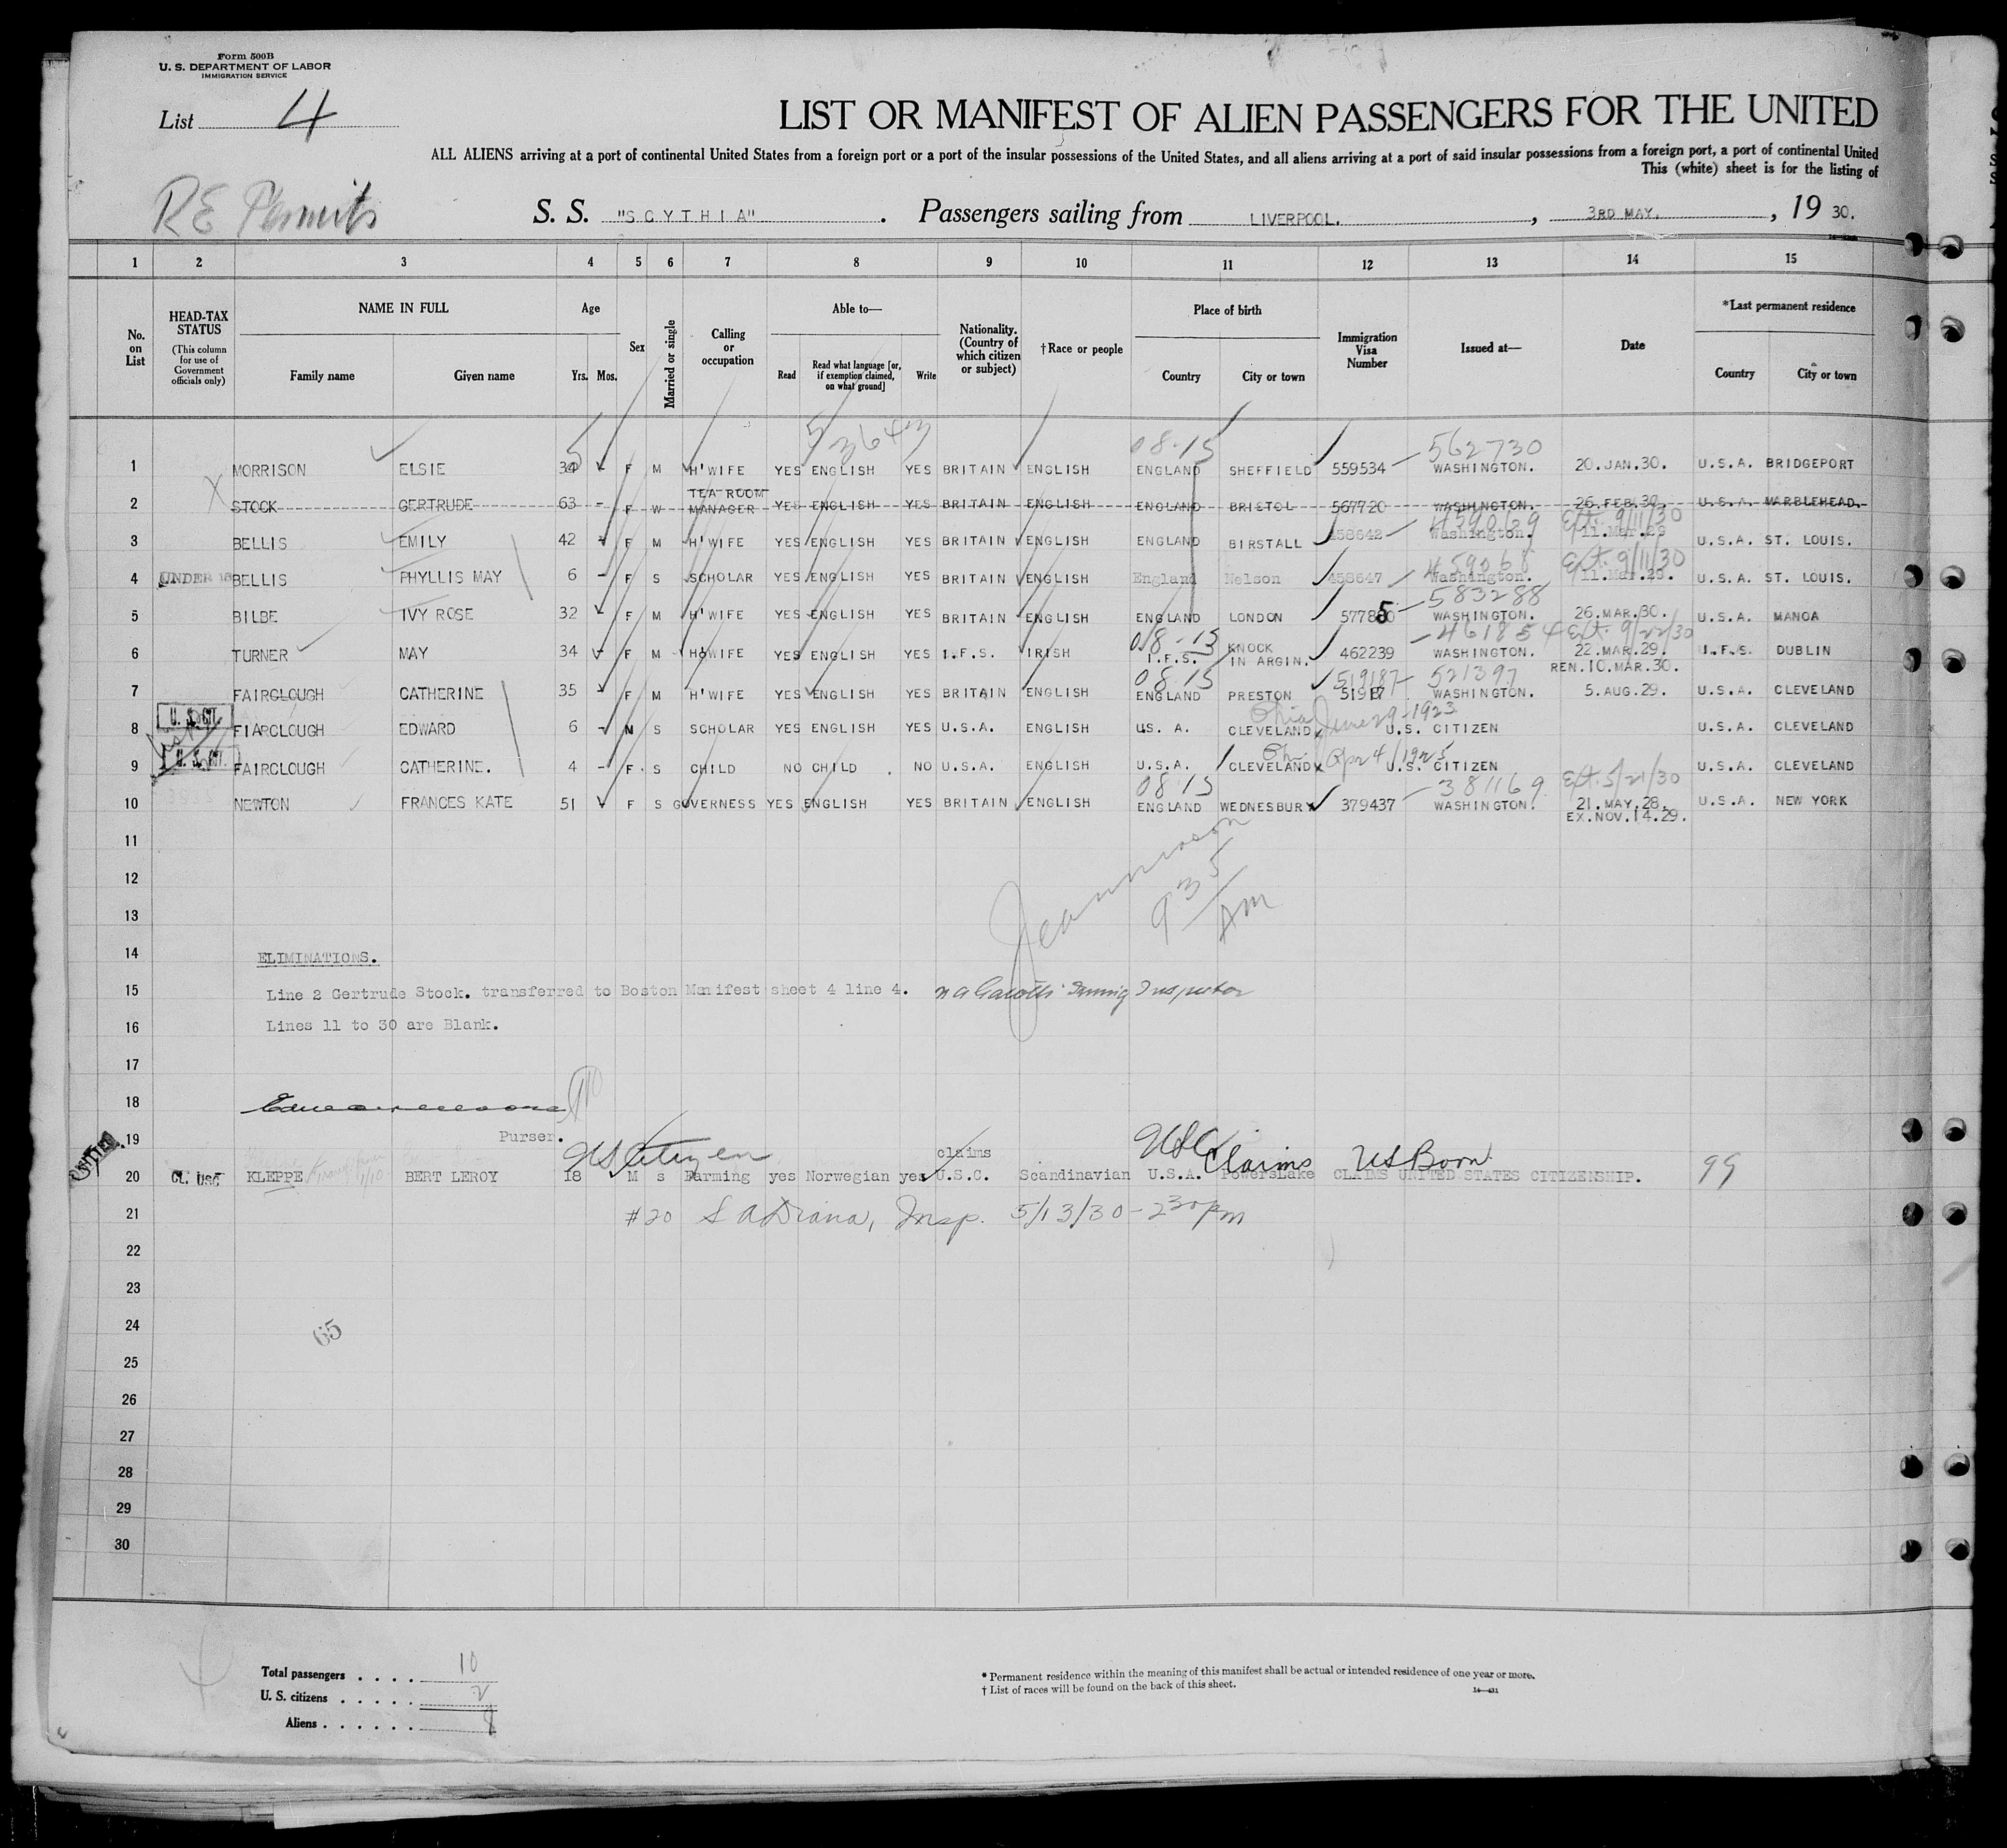 Form 500B
U. S. DEPARTMENT OF LABOR
IMMIGRATION SERVICE
List 4
LIST OR MANIFEST OF ALIEN PASSENGERS FOR THE UNITED
ALL ALIENS arriving at a port of continental United States from a foreign port or a port of the insular possessions of the United States, and all aliens arriving at a port of said insular possessions from a foreign port, a port of continental United
This (white) sheet is for the listing of
RE Permits
S. S. "SCYTHIA" . Passengers sailing from LIVERPOOL. , 3RD MAY. , 19 30.
1 2 3 4 5 6 7 8 9 10 11 12 13 14 15
No. on List
HEAD-TAX STATUS (This column for use of Government officials only)
NAME IN FULL Family name Given name
Age Yrs. Mos.
Sex
Married or single
Calling or occupation
Able to— Read Read what language [or, if exemption claimed, on what ground] Write
Nationality. (Country of which citizen or subject)
†Race or people
Place of birth Country City or town
Immigration Visa Number
Issued at—
Date
*Last permanent residence Country City or town
5/3643 08-15 562730
1 MORRISON ELSIE 34 F M H'WIFE YES ENGLISH YES BRITAIN ENGLISH ENGLAND SHEFFIELD 559534 WASHINGTON. 20.JAN.30. U.S.A. BRIDGEPORT
2 STOCK GERTRUDE 63 - F W TEA ROOM MANAGER YES ENGLISH YES BRITAIN ENGLISH ENGLAND BRISTOL 567720 WASHINGTON. 26.FEB.30. U.S.A. MARBLEHEAD.
459029 Ext. 9/11/30
3 BELLIS EMILY 42 F M H'WIFE YES ENGLISH YES BRITAIN ENGLISH ENGLAND BIRSTALL 458642 Washington. 11.Mar.29 U.S.A. ST. LOUIS.
459068 Ext. 9/11/30
4 UNDER 16 BELLIS PHYLLIS MAY 6 - F S SCHOLAR YES ENGLISH YES BRITAIN ENGLISH England Nelson 458647 Washington. 11.Mar.29. U.S.A. ST. LOUIS.
583288
5 BILBE IVY ROSE 32 F M H'WIFE YES ENGLISH YES BRITAIN ENGLISH ENGLAND LONDON 577850 WASHINGTON. 26.MAR.30. U.S.A. MANOA
08-15 461854 Ext. 9/22/30
6 TURNER MAY 34 F M H'WIFE YES ENGLISH YES I.F.S. IRISH I.F.S. KNOCK IN ARGIN. 462239 WASHINGTON. 22.MAR.29. REN.10.MAR.30. I.F.S. DUBLIN
08-15 519187 521397
7 FAIRCLOUGH CATHERINE 35 F M H'WIFE YES ENGLISH YES BRITAIN ENGLISH ENGLAND PRESTON WASHINGTON. 5.AUG.29. U.S.A. CLEVELAND
Ohio June 29-1923
8 U.S.CIT. FIARCLOUGH EDWARD 6 - M S SCHOLAR YES ENGLISH YES U.S.A. ENGLISH U.S. A. CLEVELAND U.S. CITIZEN U.S.A. CLEVELAND
Apr 4/1925
9 U.S.CIT. FAIRCLOUGH CATHERINE. 4 - F. S CHILD NO CHILD . NO U.S.A. ENGLISH U.S.A. CLEVELAND U.S. CITIZEN U.S.A. CLEVELAND
08-15 381169 Ext. 5/21/30
10 NEWTON FRANCES KATE 51 F S GOVERNESS YES ENGLISH YES BRITAIN ENGLISH ENGLAND WEDNESBURY 379437 WASHINGTON. 21.MAY.28. EX.NOV.14.29. U.S.A. NEW YORK
11
12
13 935 AM
14 ELIMINATIONS.
15 Line 2 Gertrude Stock. transferred to Boston Manifest sheet 4 line 4. Inspector
16 Lines 11 to 30 are Blank.
17
18
19 Purser.
US Citizen claims USC Claims US Born
20 Cl. USC KLEPPE BERT LEROY 18 M s Farming yes Norwegian yes U.S.C. Scandinavian U.S.A. PowersLake CLAIMS UNITED STATES CITIZENSHIP. 99
21 #20 S A Diana, Insp. 5/13/30 - 230 pm
22
23
24 65
25
26
27
28
29
30
Total passengers . . . . 10
U. S. citizens . . . . . 2
Aliens . . . . . . 8
* Permanent residence within the meaning of this manifest shall be actual or intended residence of one year or more.
† List of races will be found on the back of this sheet.